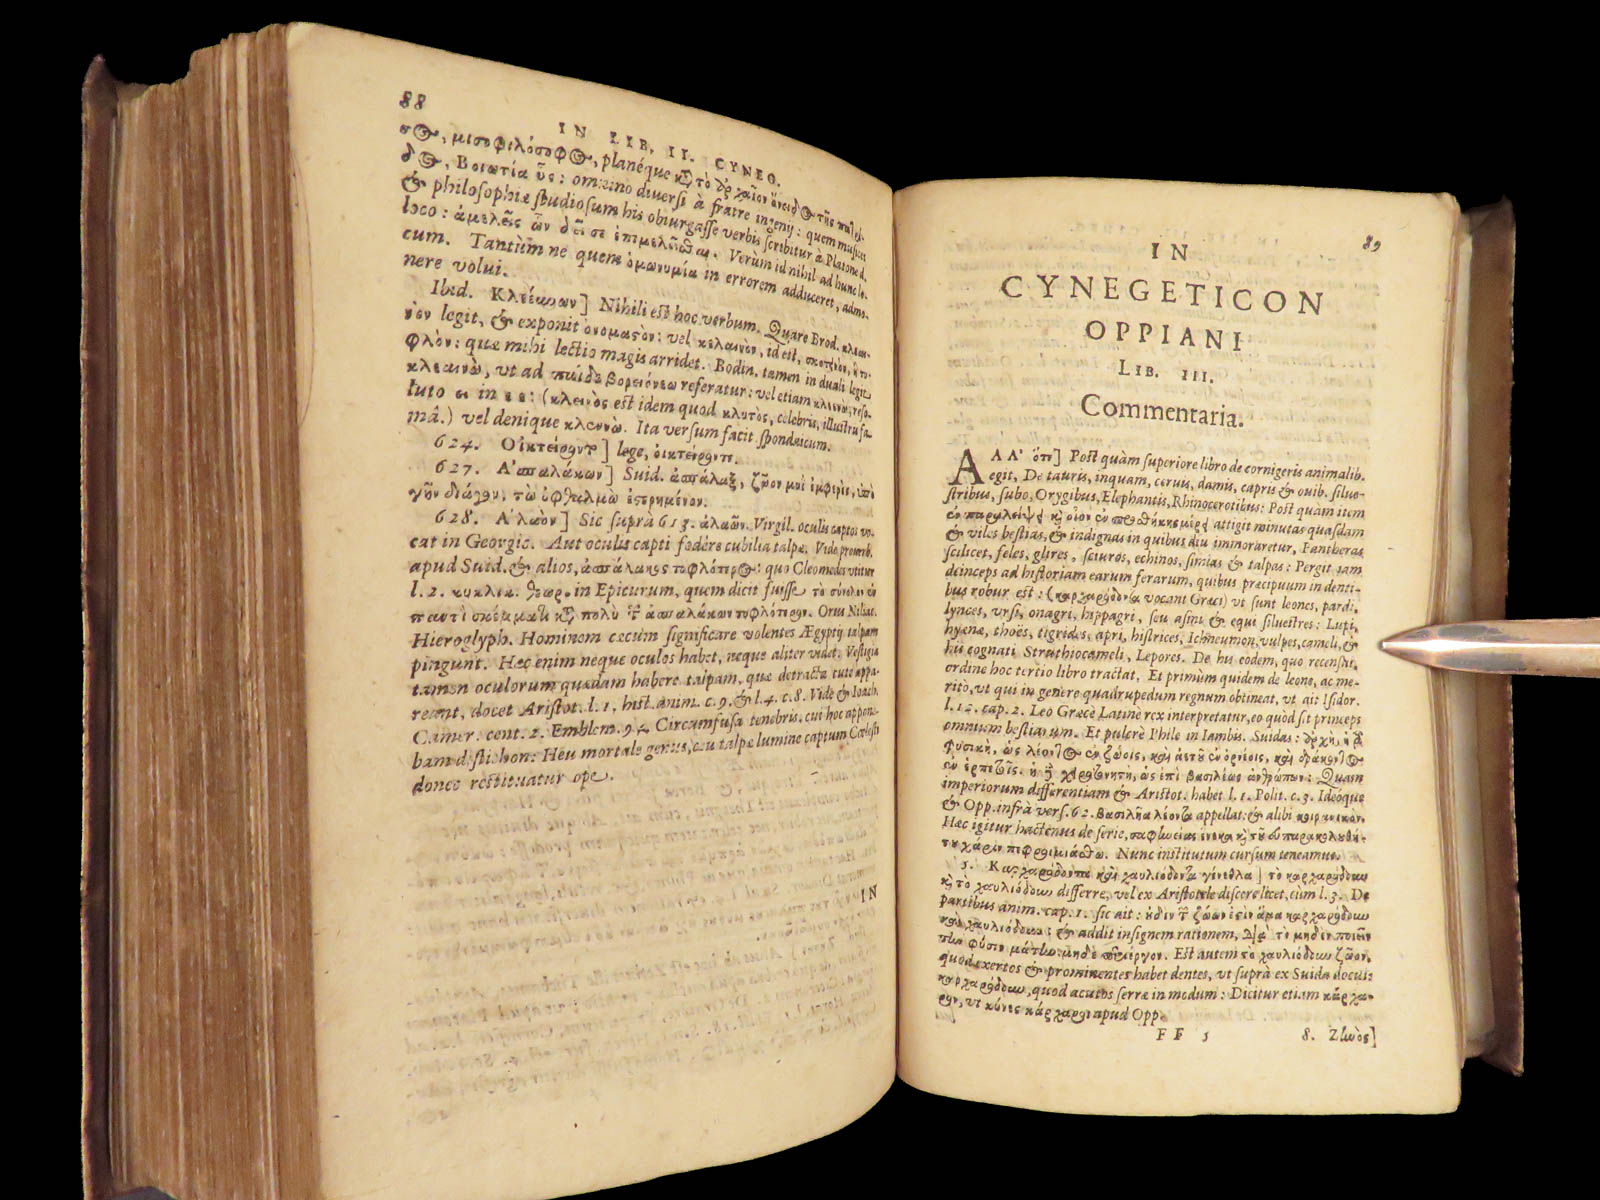 88
IN LIB. II. CYNEG.
σος, μισοφιλόσοφος, planéque καὶ τὸ ἀρχαῖον ὄνειδος τῆς παιδεί-
Βοιωτία ὗς: omnino diversi à fratre ingenij: quem musices
& philosophiæ studiosum his obiurgasse verbis scribitur à Platone d.
loco: ἀμελεῖς ὧν δεῖ σε ἐπιμελεῖσθαι. Verùm id nihil ad hunc lo-
cum. Tantùm ne quem ὁμωνυμία in errorem adduceret, admo-
nere volui.
Ibid. ] Nihili est hoc verbum. Quare Brod. κλεει-
νὸν legit, & exponit ὀνομαστὸν: vel κελαινὸν, id est, σκοτεινὸν, ἢ τυ-
φλὸν: quæ mihi lectio magis arridet. Bodin. tamen in duali legit
κλεεινὼ, ut ad παῖδε βορειόνεω referatur: vel etiam κλεινὼ, reso-
luto ει in εε: (κλεινὸς est idem quod κλυτὸς, celebris, illustri fa-
mâ.) vel denique κλεννώ. Ita versum facit spondaicum.
624. ] lege, οἰκτείροντι.
627. Ἀσπαλάκων] Suid. ἀσπάλαξ, ζῶον μυῒ ἐμφερὲς, ὑπὸ
γῆν διάγον, τῶ ὀφθαλμῶ ἐστερημένον.
628. Ἀλαὸν] Sic suprà 613. ἀλαῶν. Virgil. oculis captos vo-
cat in Georgic. Aut oculis capti fodêre cubilia talpæ. Vide proverb.
apud Suid. & alios, ἀσπάλακος τυφλότερος: quo Cleomedes utitur
l. 2. κυκλικ. θεωρ. in Epicurum, quem dicit fuisse
πολὺ τῶν ἀσπαλάκων τυφλότερον. Orus Niliac.
Hieroglyph. Hominem cæcum significare volentes Ægyptij talpam
pingunt. Hæc enim neque oculos habet, neque aliter videt. Vestigia
tamen oculorum quædam habere talpam, quæ detracta cute appa-
reant, docet Aristot. l. 1. hist. anim. c. 9. & l. 4. c. 8. Vide & Ioach.
Camer. cent. 2. Emblem. 94. Circumfusa tenebris. cui hoc appone-
bam distichon: Heu mortale genus, ceu talpæ lumine captum Cœlesti
donec restituatur ope.
IN
89
IN
CYNEGETICON
OPPIANI
LIB. III.
Commentaria.
ΑΛΛ' ὅτι] Post quàm superiore libro de cornigeris animalib.
egit, De tauris, inquam, cervis, damis, capris & ovib. silve-
stribus, subo, Orygibus, Elephantis, Rhinocerotibus: Post quàm item
attigit minutas quasdam
& viles bestias, & indignas in quibus diu immoraretur, Pantheras
scilicet, feles, glires, sciuros, echinos, simias & talpas: Pergit iam
deinceps ad historiam earum ferarum, quibus præcipuum in denti-
bus robur est: (καρχαρόδοντα vocant Græci) ut sunt leones, pardi,
lynces, ursi, onagri, hippagri, seu asini & equi silvestres: Lupi,
hyænæ, thoës, tigrides, apri, histrices, Ichneumon, vulpes, cameli, &
his cognati Struthiocameli, Lepores. De his eodem, quo recensût,
ordine hoc tertio libro tractat. Et primùm quidem de leone, ac me-
ritò, ut qui in genere quadrupedum regnum obtineat, ut ait Isidor.
l. 12. cap. 2. Leo Græcè Latinè rex interpretatur, eo quòd sit princeps
omnium bestiarum. Et pulcrè Phile in Iambis. Suidas: ἀρχὴ, ἡ
φυσικὴ, ὡς λέοντος ἐν ζώοις, καὶ ἀετοῦ ἐν ὀρνέοις, καὶ δράκοντος
ἐν ἑρπετοῖς. ἡ χειροτονητὴ, ὡς ἐπὶ βασιλέως ἀνθρώπων: Quam
imperiorum differentiam & Aristot. habet l. 1. Polit. c. 3. Ideóque
& Opp. infrà vers. 62. βασιλῆα λέοντα appellat: & alibi κοιρανικόν.
Hæc igitur hactenus de serie, σαφηνείας ἕνεκα καὶ τοῦ εὐπαρακολουθή-
του χάριν Nunc institutum cursum teneamus.
5. Καρχαρόδοντα καὶ χαυλιόδοντα γένεθλα] τὸ καρχαρόδουν
καὶ τὸ χαυλιόδουν differre, vel ex Aristotele discere licet, cùm l. 3. De
partibus anim. cap. 1. sic ait: οὐδὲν τῶν ζώων ἐστὶν ἅμα καρχαρόδουν
καὶ χαυλιόδουν: & addit insignem rationem, διὰ τὸ μηδὲν ποιεῖν
τὴν φύσιν μάτην, μηδὲ περίεργον. Est autem τὸ χαυλιόδουν ζῶον,
quod exertos & prominentes habet dentes, ut suprà ex Suida docui:
καρχαρόδουν, quod acutos serræ in modum: Dicitur etiam κάρχα-
ρον, ut κύνες κάρχαροι apud Opp.
FF 5
8. Ζωὸς]